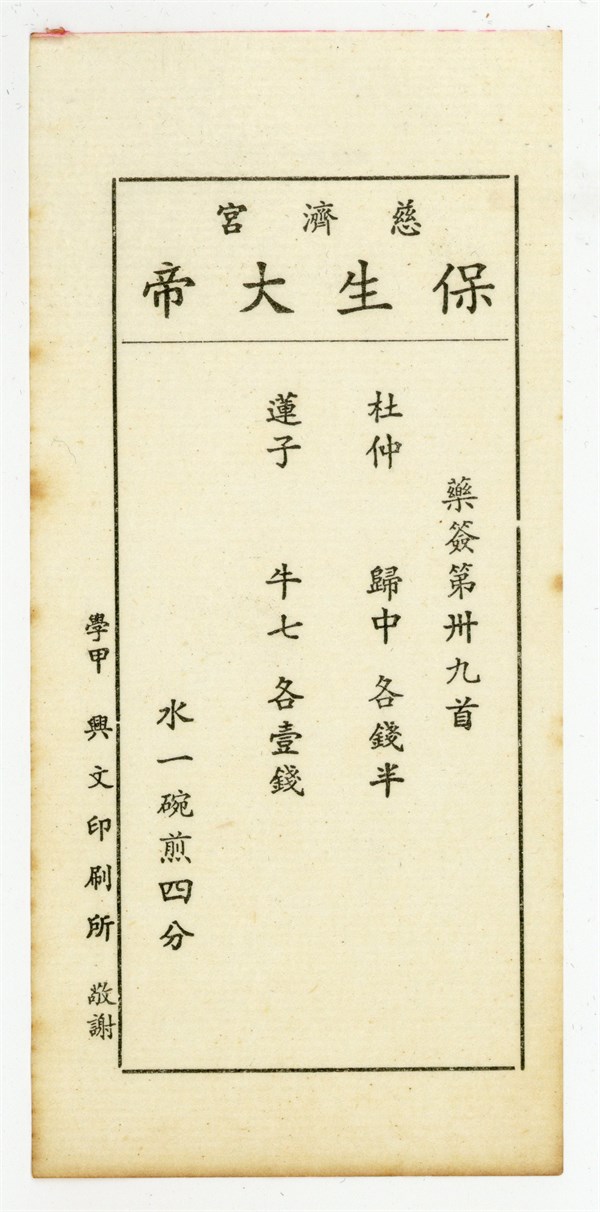 慈濟宮
保生大帝
藥簽第卅九首
杜仲 歸中 各錢半
蓮子 牛七 各壹錢
水一碗煎四分
學甲 興文印刷所 敬謝